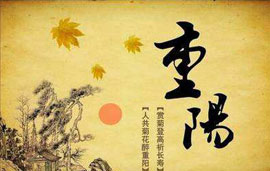 重陽
【賞菊登高祈长寿】
【人共菊花醉重阳】